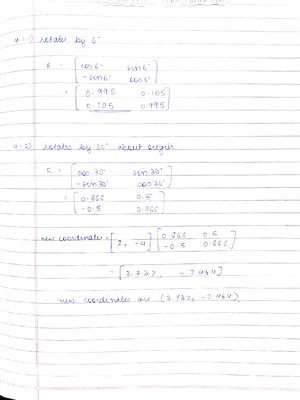 Q.1.1) rotates by 6°
R = [ cos 6° sin 6°
-sin 6° cos 6° ]
= [ 0.995 0.105
0.105 0.995 ]
Q.1.2) rotates by 30° about origin
R = [ cos 30° sin 30°
-sin 30° cos 30° ]
= [ 0.866 0.5
-0.5 0.866 ]
new coordinates = [ 2, -4 ] [ 0.866 0.5
-0.5 0.866 ]
= [ 3.732, -2.464 ]
new coordinates are (3.732, -2.464)